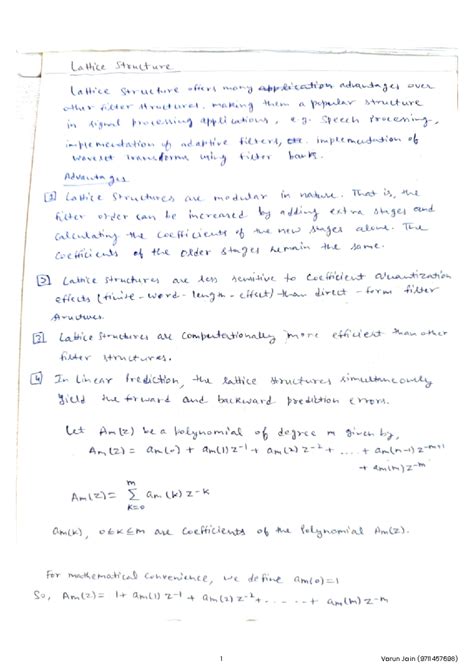 Lattice Structure
Lattice structure offers many application advantages over
other filter structures, making them a popular structure
in signal processing applications, e.g. speech processing,
implementation of adaptive filters, etc. implementation of
wavelet transforms using filter bank.
Advantages
[1] Lattice structures are modular in nature. That is, the
filter order can be increased by adding extra stages and
calculating the coefficients of the new stages alone. The
coefficients of the older stages remain the same.
[2] Lattice structures are less sensitive to coefficient quantization
effects (finite-word-length-effect) than direct-form filter
structures.
[3] Lattice structures are computationally more efficient than other
filter structures.
[4] In linear prediction, the lattice structures simultaneously
yield the forward and backward prediction errors.
Let Am(z) be a polynomial of degree m given by,
Am(z) = am(0) + am(1)z^-1 + am(2)z^-2 + .... + am(m-1)z^-m+1
+ am(m)z^-m
Am(z) = m∑k=0 am(k)z^-k
am(k), 0≤k≤m are coefficients of the polynomial Am(z).
For mathematical convenience, we define am(0)=1
So, Am(z) = 1 + am(1)z^-1 + am(2)z^-2 + ..... + am(m)z^-m
1
Varun Jain (9711457698)